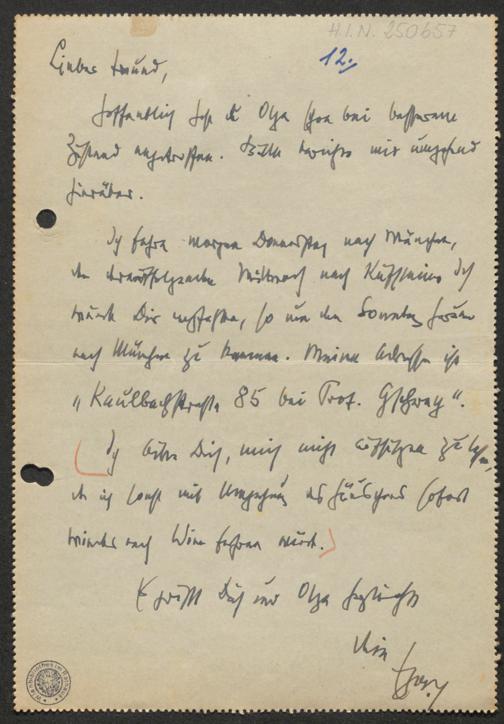 H.I.N. 250657
12.
Lieber Freund,
hoffentlich hast du Olga schon bei besserem
Zustand angetroffen. Bitte berichte mir umgehend
hierüber.
Ich fahre morgen Donnerstag nach München,
den darauffolgenden Mittwoch nach Kufstein. Ich
würde Dir, so um den Sonntag herum
nach München zu kommen. Meine Adresse ist
„Kaulbachstrasse 85 bei Prof. Gschrey“.
Ich bitte Dich, mich nicht aufsitzen zu lassen,
da ich sonst mit Umgehung des sofort
wieder nach Wien fahren würde.
Es grüßt Dich und Olga herzlichst
Dein